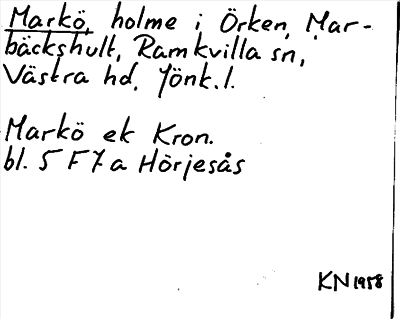 Markö, holme i Örken, Mar-
bäckshult, Ramkvilla sn,
Västra hd, Jönk. l.
Markö ek Kron.
bl. 5 F 7 a Hörjesås
KN 1958